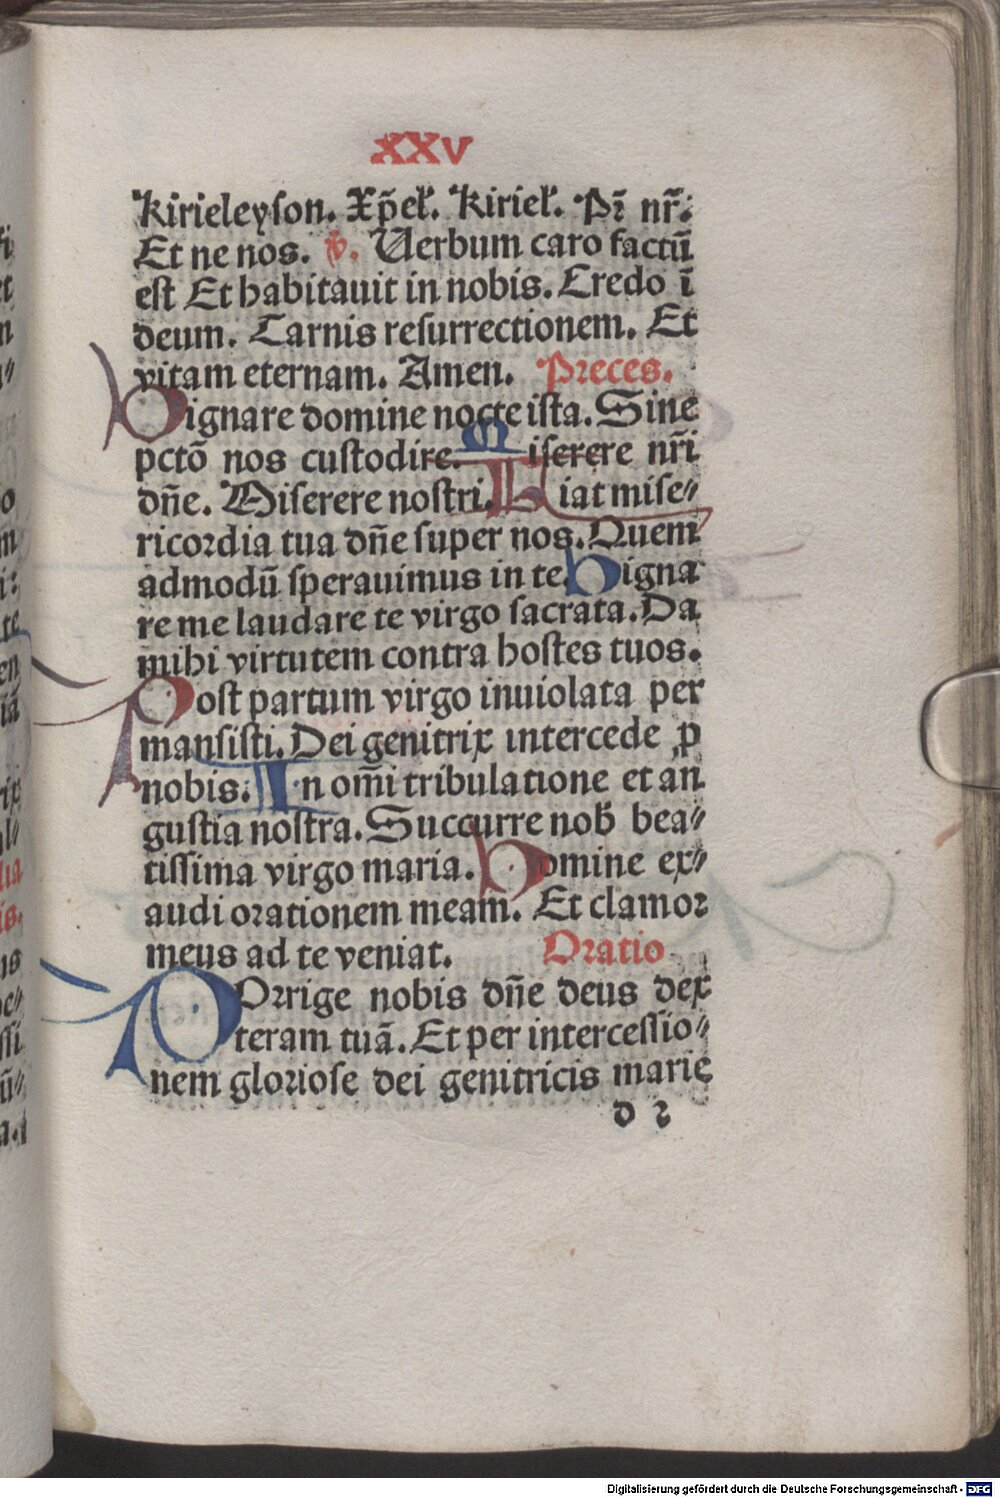 XXV
Kirieleyson. Xp̄eł. Kirieł. Pr̄ nr̄.
Et ne nos. v. Uerbum caro factū
est Et habitauit in nobis. Credo ī
deum. Carnis resurrectionem. Et
vitam eternam. Amen. Preces.
Dignare domine nocte ista. Sine
pctō nos custodire. Miserere nr̄i
dn̄e. Miserere nostri. Fiat mise⸗
ricordia tua dn̄e super nos. Quem
admodū sperauimus in te. Digna
re me laudare te virgo sacrata. Da
mihi virtutem contra hostes tuos.
Post partum virgo inuiolata per
mansisti. Dei genitrix intercede ꝓ
nobis. In om̄i tribulatione et an
gustia nostra. Succurre nob̄ bea⸗
tissima virgo maria. Domine ex⸗
audi orationem meam. Et clamor
meus ad te veniat. Oratio
POrrige nobis dn̄e deus dex
teram tuā. Et per intercessio⸗
nem gloriose dei genitricis marie
d 2
Digitalisierung gefördert durch die Deutsche Forschungsgemeinschaft - DFG